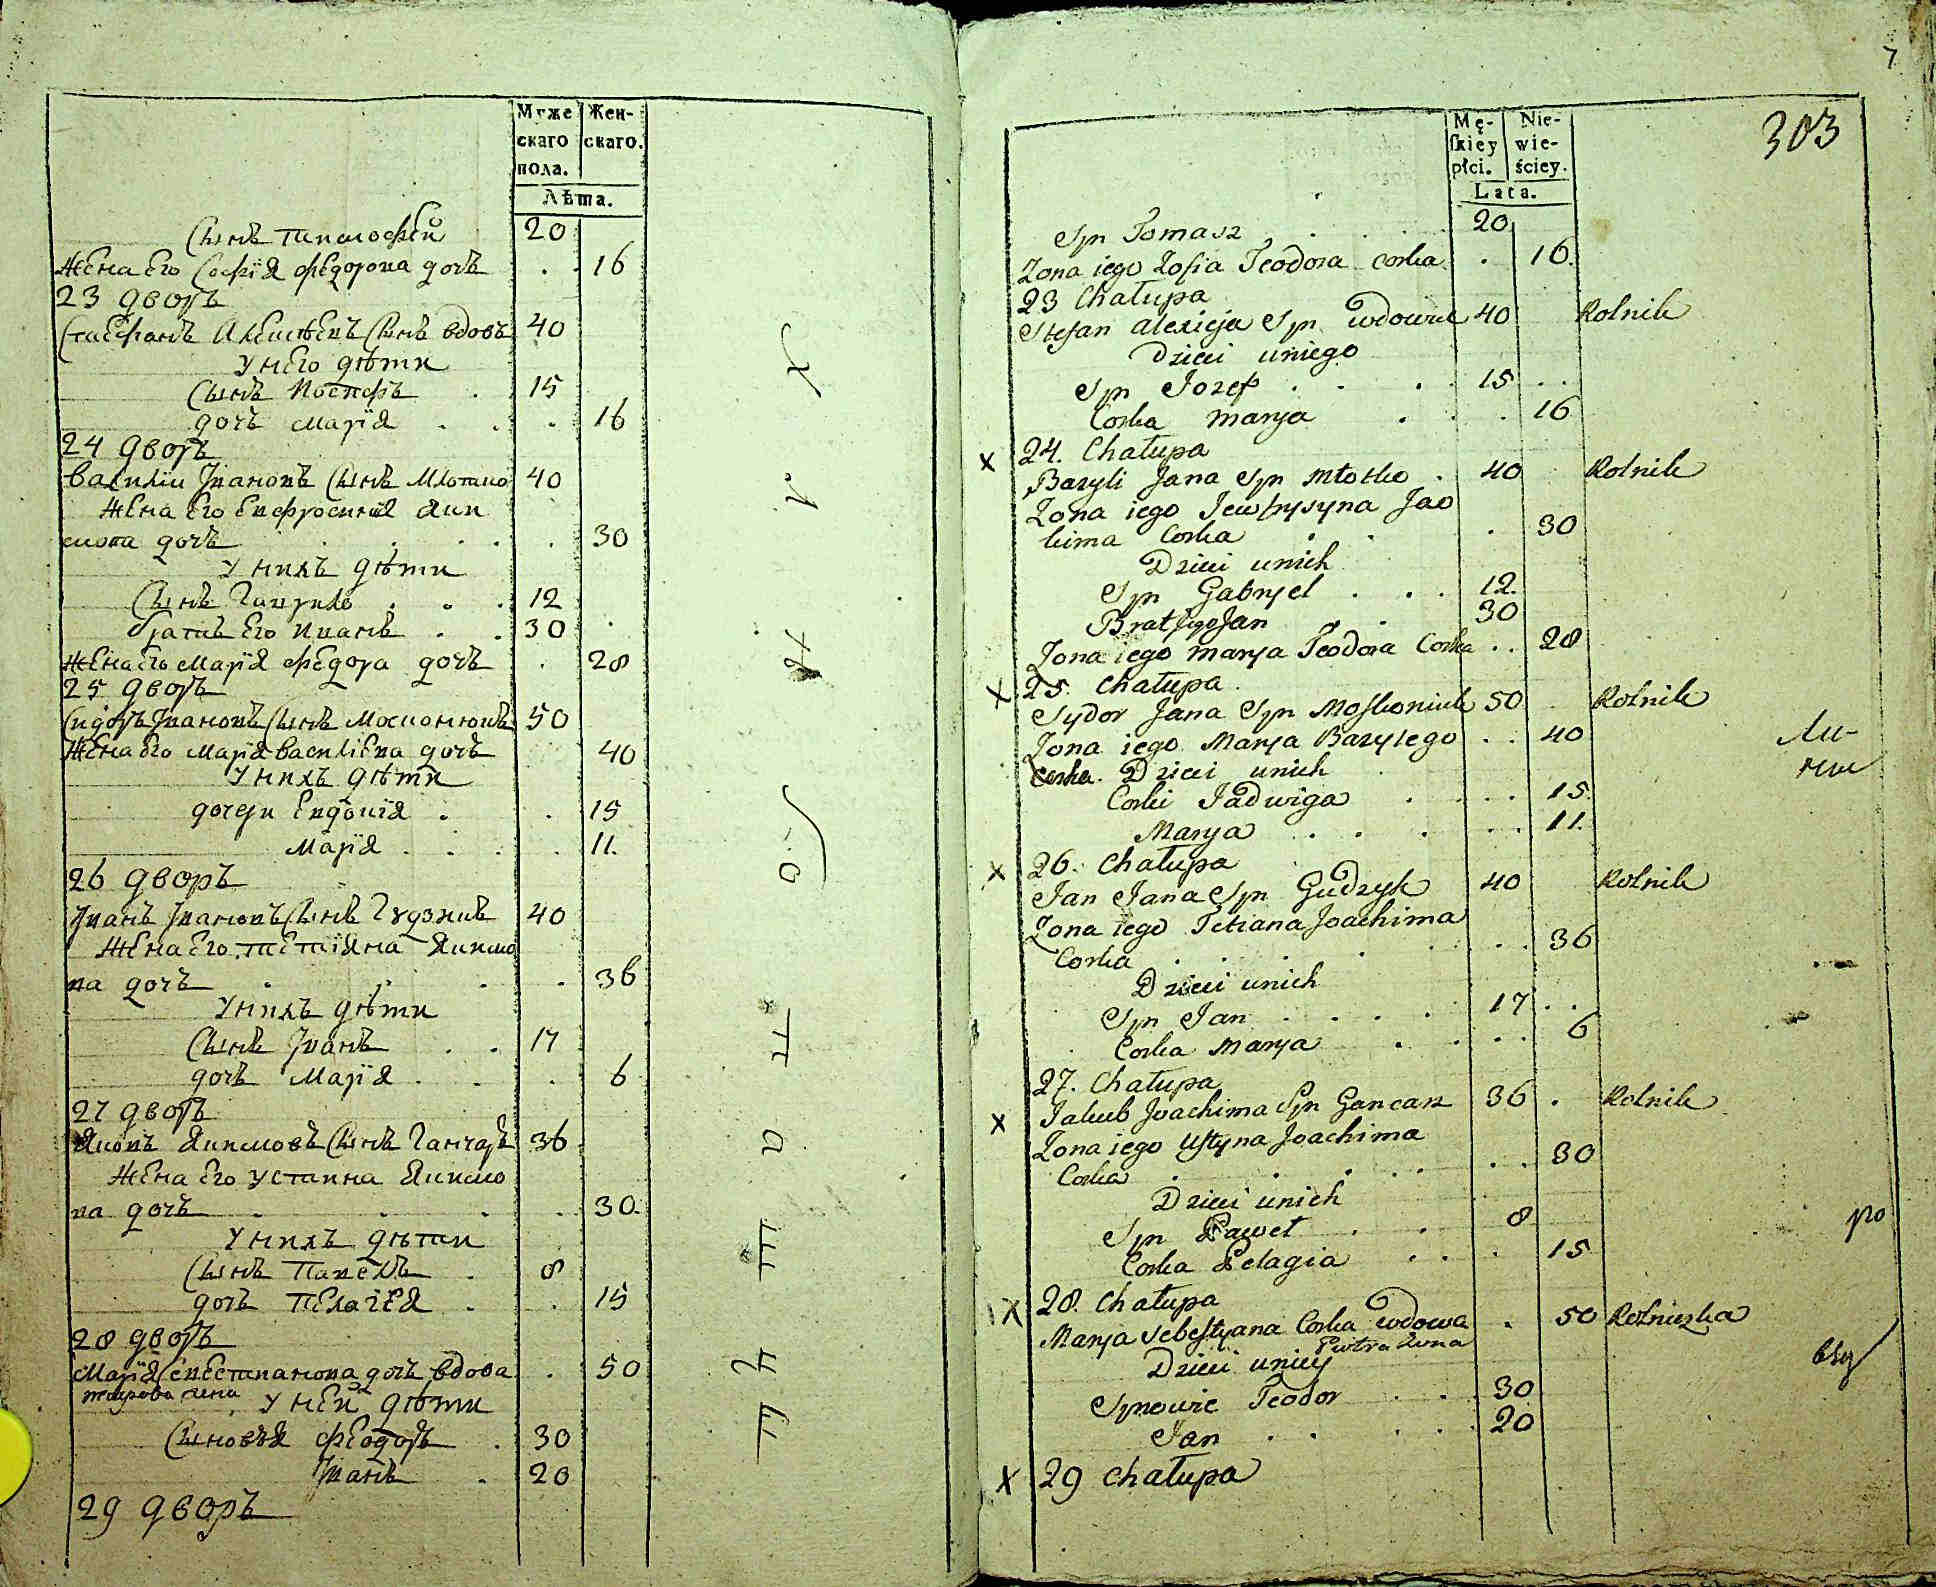 Муже
скаго
пола.
Жен-
скаго.
Лѣта.
Сынъ Тимософей 20
Жена Его Софїя Федорова дочь 16
23 дворъ
Стефанъ Алексѣевъ Сынъ вдовъ 40
У него дѣти
Сынъ Иосифъ 15
дочь Марїя 16
24 дворъ
Василии Iвановъ Сынъ Млотко 40
Жена Его Евфросинїя Яки
мова дочь 30
У нихъ дѣти
Сынъ Гаврило 12
братъ Его Иванъ 30
Жена Его Марїя Федора дочь 28
25 дворъ
Сидоръ Iвановъ Сынъ Москонюкъ 50
Жена Его Марїя Василїева дочь 40
У нихъ дѣти
дочери Евдокїя 15
Марїя 11.
26 дворъ
Iванъ Iвановъ Сынъ Гудзикъ 40
Жена Его Тетїяна Якимо
ва дочь 36
У нихъ дѣти
Сынъ Iванъ 17
дочь Марїя 6
27 дворъ
Яковъ Якимовъ Сынъ Ганчаръ 36
Жена Его Устина Якимо
ва дочь 30.
У нихъ дѣти
Сынъ Павелъ 8
дочь Пелагїя 15
28 дворъ
Марїя Севестианова дочь вдова 50
петрова жена У ней дѣти
Сыновья Феодоръ 30
Iванъ 20
29 дворъ
7
303
Mę-
skiey
płci.
Nie-
wie-
ściey.
Lata.
Syn Tomasz 20
Zona iego Zofia Teodora corka 16.
23 Chałupa
Stefan Alexieja Syn wdowiec 40 Rolnik
Dzieci u niego
Syn Jozef 15
Corka Marya 16
24. Chałupa
Bazyli Jana Syn Młotko 40 Rolnik
Zona iego Jewfrysyna Jao
kima Corka 30
Dzieci u nich
Syn Gabryel 12.
Brat Jego Jan 30
Zona iego Marya Teodora Corka 28
25. Chałupa
Sydor Jana Syn Moskoniuk 50 Rolnik
Zona iego Marya Bazylego 40
Corka. Dzieci u nich
Corki Jadwiga 15.
Marya 11.
26. Chałupa
Jan Jana Syn Gudzyk 40 Rolnik
Zona iego Tetiana Joachima
Corka 36
Dzieci u nich
Syn Jan 17
Corka Marya 6
27. Chałupa
Jakub Joachima Syn Gancarz 36 Rolnik
Zona iego Ustyna Joachima
Corka 30
Dzieci u nich
Syn Paweł 8
Corka Pelagia 15
28. Chałupa
Marya Sebestyana Corka wdowa 50 Rolniczka
Piotra Zona
Dzieci u niey
Synowie Teodor 30
Jan 20
29 Chałupa